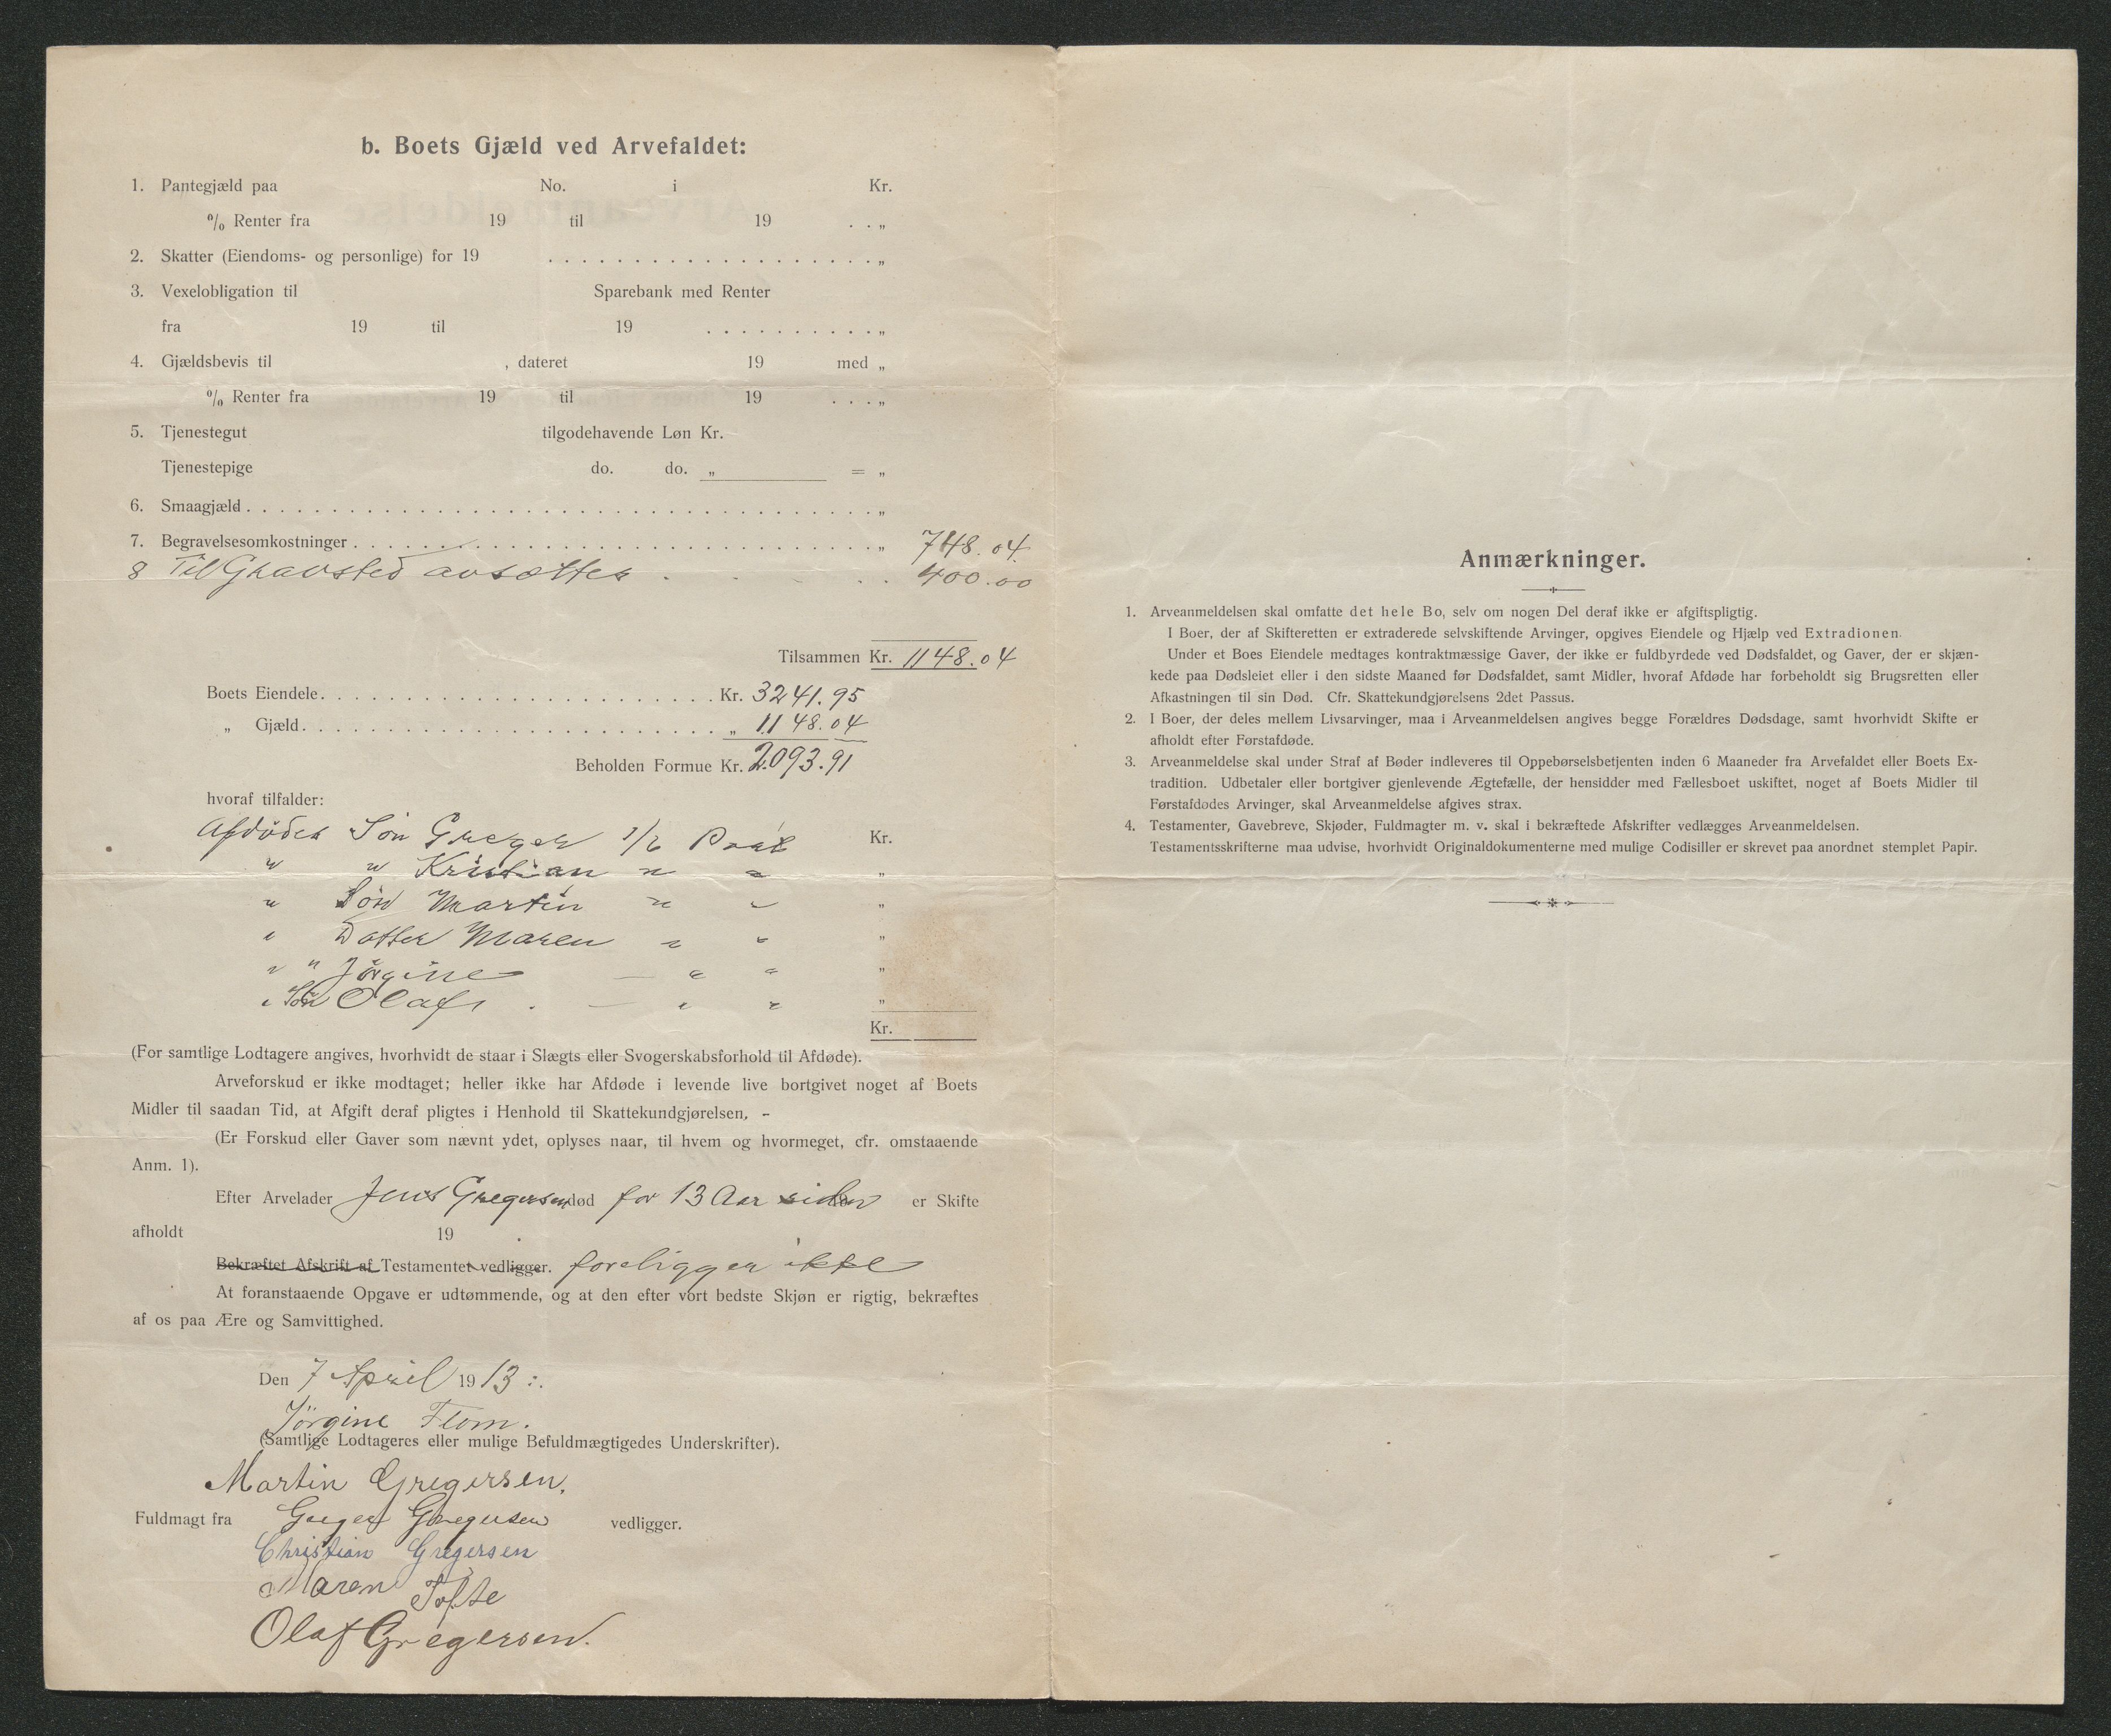 b. Boets Gjæld ved Arvefaldet:
1. Pantegjæld paa No. i Kr.
% Renter fra 19 til 19 . . „
2. Skatter (Eiendoms- og personlige) for 19 . . . . . . . . . . . . . . . . . . . „
3. Vexelobligation til Sparebank med Renter
fra 19 til 19 . . . . . . . . . . „
4. Gjældsbevis til , dateret 19 med „
% Renter fra 19 til 19 . . . „
5. Tjenestegut tilgodehavende Løn Kr.
Tjenestepige do. do. „ = „
6. Smaagjæld . . . . . . . . . . . . . . . . . . . . „
7. Begravelsesomkostninger . . . . . . . . . . . . . . . . „ 748.04
8 Til Gravsted avsættes . . . . . 400.00
Tilsammen Kr. 1148.04
Boets Eiendele . . . . . . . . . . . . . . . . Kr. 3241.95
„ Gjæld . . . . . . . . . . . . . . . . „ 1148.04
Beholden Formue Kr. 2093.91
hvoraf tilfalder:
Afdødes Søn Greger 1/6 Part Kr.
" " Kristian " " „
" Søn Martin " " „
" Datter Maren " " „
" " Jörgine — " " „
" Søn Olaf . — " " „
Kr.
(For samtlige Lodtagere angives, hvorhvidt de staar i Slægts eller Svogerskabsforhold til Afdøde).
Arveforskud er ikke modtaget; heller ikke har Afdøde i levende live bortgivet noget af Boets
Midler til saadan Tid, at Afgift deraf pligtes i Henhold til Skattekundgjørelsen, -
(Er Forskud eller Gaver som nævnt ydet, oplyses naar, til hvem og hvormeget, cfr. omstaaende
Anm. 1).
Efter Arvelader Jens Gregersen død for 13 Aar siden er Skifte
afholdt 19 .
Bekræftet Afskrift af Testamentet vedligger. foreligger ikke
At foranstaaende Opgave er udtømmende, og at den efter vort bedste Skjøn er rigtig, bekræftes
af os paa Ære og Samvittighed.
Den 7 April 1913 :.
Jörgine Flom.
(Samtlige Lodtageres eller mulige Befuldmægtigedes Underskrifter).
Martin Gregersen.
Fuldmagt fra Greger Gregersen vedligger.
Christian Gregersen
Maren Tofte
Olaf Gregersen.
Anmærkninger.
1. Arveanmeldelsen skal omfatte det hele Bo, selv om nogen Del deraf ikke er afgiftspligtig.
I Boer, der af Skifteretten er extraderede selvskiftende Arvinger, opgives Eiendele og Hjælp ved Extradionen.
Under et Boes Eiendele medtages kontraktmæssige Gaver, der ikke er fuldbyrdede ved Dødsfaldet, og Gaver, der er skjæn-
kede paa Dødsleiet eller i den sidste Maaned før Dødsfaldet, samt Midler, hvoraf Afdøde har forbeholdt sig Brugsretten eller
Afkastningen til sin Død. Cfr. Skattekundgjørelsens 2det Passus.
2. I Boer, der deles mellem Livsarvinger, maa i Arveanmeldelsen angives begge Forældres Dødsdage, samt hvorhvidt Skifte er
afholdt efter Førstafdøde.
3. Arveanmeldelse skal under Straf af Bøder indleveres til Oppebørselsbetjenten inden 6 Maaneder fra Arvefaldet eller Boets Ex-
tradition. Udbetaler eller bortgiver gjenlevende Ægtefælle, der hensidder med Fællesboet uskiftet, noget af Boets Midler til
Førstafdødes Arvinger, skal Arveanmeldelse afgives strax.
4. Testamenter, Gavebreve, Skjøder, Fuldmagter m. v. skal i bekræftede Afskrifter vedlægges Arveanmeldelsen.
Testamentsskrifterne maa udvise, hvorhvidt Originaldokumenterne med mulige Codisiller er skrevet paa anordnet stemplet Papir.